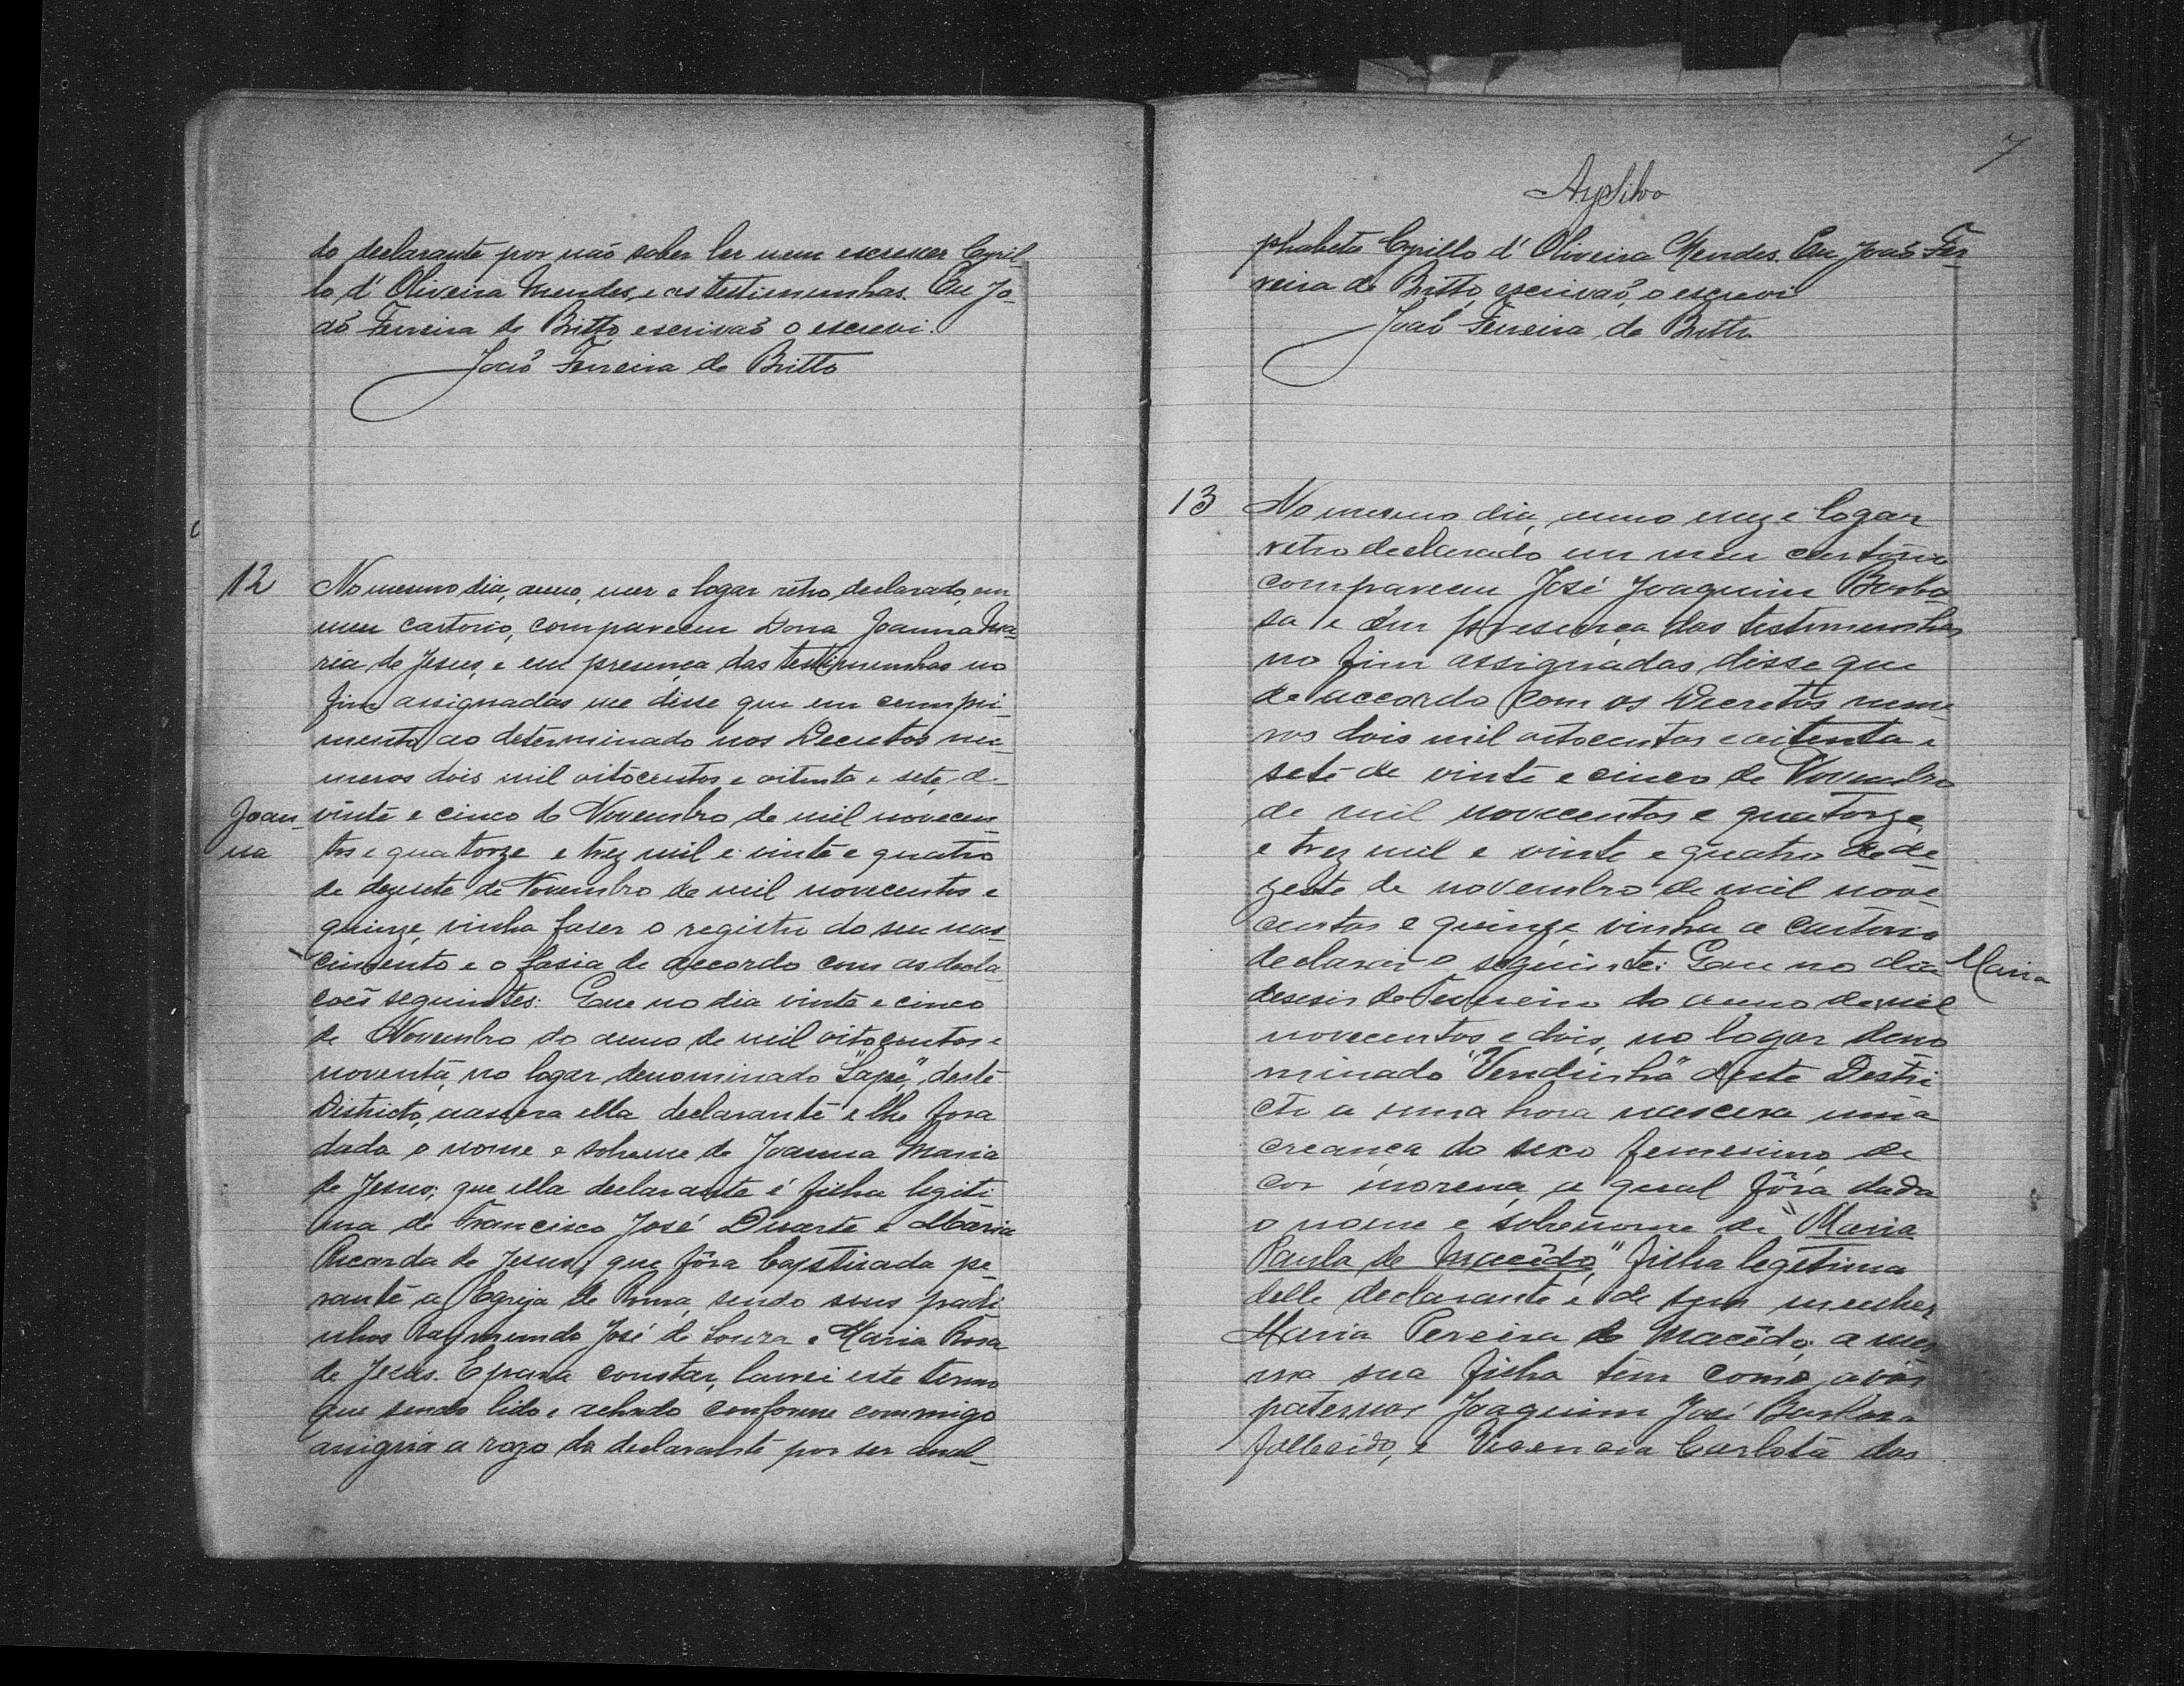 do declarante por não saber ler nem escrever Cyril-
lo d'Oliveira Mendes, e as testimunhas. Eu Jo-
ão Ferreira de Britto, escrivaõ o escrevi.
João Ferreira de Britto
12
No mesmo dia, anno, mez e logar retro declarado, em
meu cartorio, compareceu Dona Joanna Ma-
ria de Jesus, e em presença das testimunhas no
fim assignadas me disse que em cumpri-
mento ao determinado nos Decretos nu-
meros dois mil oitocentos e oitenta e sete, de
Joan-
na
vinte e cinco de Novembro de mil novecen-
tos e quatorze e trez mil e vinte e quatro
de dezesete de Novembro de mil novecentos e
quinze, vinha faser o registro do seu nas-
cimento e o fasia de accordo com as decla-
ções seguintes: Que no dia vinte e cinco
de Novembro do anno de mil oitocentos e
noventa, no logar denominado "Sapé", deste
Districto, nascera ella declarante e lhe fora
dado o nome e sobreme de Joanna Maria
de Jesus; que ella declarante é filha legiti-
ma de Francisco José Duarte e Maria
Ricarda de Jesus; que fôra baptisada pe-
rante a Egreja de Roma, sendo seus padri-
nhos Raymundo José de Souza e Maria Rosa
de Jesus. E para constar, lavrei este termo
que sendo lido e achado conforme commigo
assigna a rogo da declarante por ser anal-
7
AypSilva
phabeta Cyrillo d'Oliveira Mendes. Eu João Fer-
reira de Britto, escrivaõ, o escrevi
João Ferreira de Britto
13
No mesmo dia, anno mez e logar
retro declarado em meu cartorio
compareceu José Joaquim Barbo-
sa e em presença das testimunhas
no fim assignadas disse que
de accordo com os Decretos nume-
ros dois mil oitocentos e oitenta e
sete de vinte e cinco de Novembro
de mil novecentos e quatorze,
e trez mil e vinte e quatro de de-
zeste de novembro de mil nove-
centos e quinze, vinha a cartorio
declarar o seguinte: Que no dia
Maria
desesis de Fevereiro do anno de mil
novecentos e dois, no logar deno
minado "Vendinha" deste Destri
cto a uma hora nascera uma
creança do sexo femenino, de
cor morena, a qual fôra dada
o nome e sobrenome de "Maria
Paula de Macêdo," filha legetima
delle declarante e de sua mulher
Maria Pereira de Macêdo; a mes
ma sua filha tem como avós
paternos Joaquim José Barbosa
fallecido, e Vicencia Carlota das